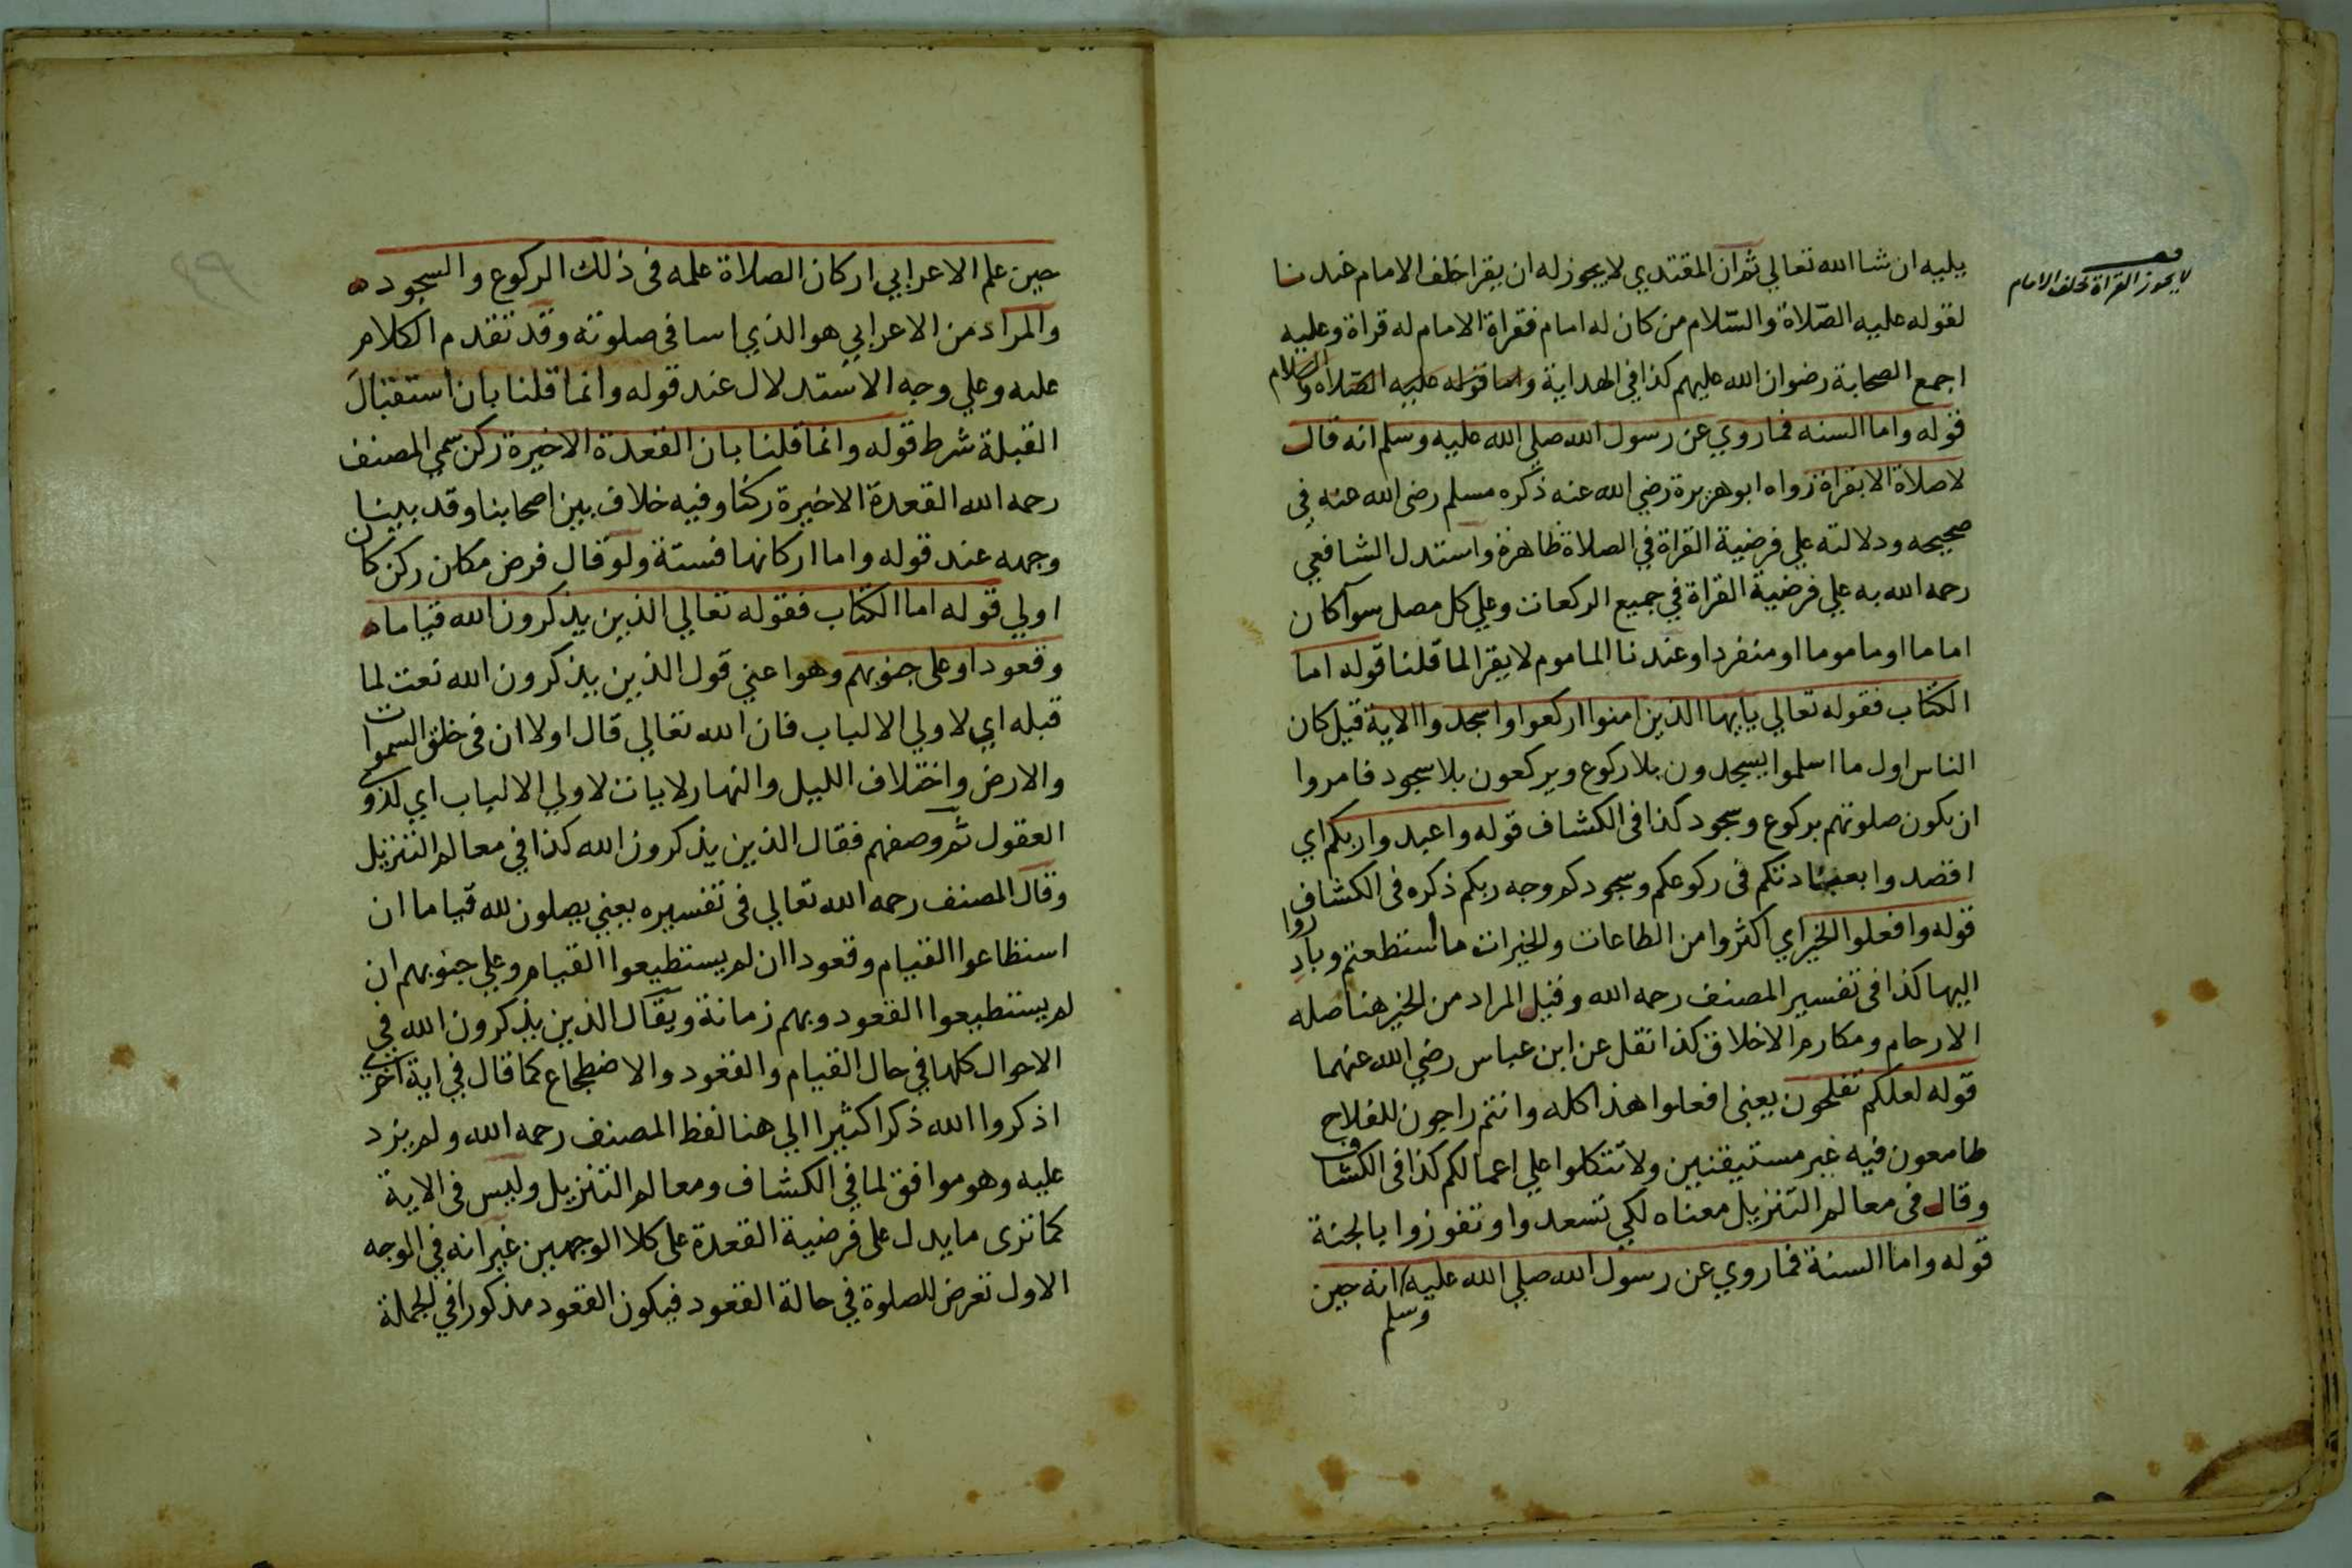 يليه ان شا الله تعالي ثم ان المقتدي لا يجوز له ان يقرا خلف الامام عندنا
لقوله عليه الصّلاة والسّلام من كان له امام فقراة الامام له قراة وعليه
اجمع الصحابة رضوان الله عليهم كذا في الهداية واما قوله عليه الصّلاة والسلام
قوله واما السنه فما روي عن رسول الله صلي الله عليه وسلم انه قال
لا صلاة الا بقراة رواه ابو هريرة رضي الله عنه ذكره مسلم رضى الله عنه في
صحيحه ودلالته علي فرضية القراة في الصلاة ظاهرة واستدل الشافعي
رحمه الله به علي فرضية القراة في جميع الركعات وعلي كل مصل سوآ كان
اماما او ماموما او منفردا وعندنا الماموم لا يقرا لما قلنا قوله اما
الكتاب فقوله تعالي يايها الذين امنوا اركعوا واسجدوا الاية قيل كان
الناس اول ما اسلموا يسجدون بلا ركوع ويركعون بلا سجود فامروا
ان يكون صلوتهم بركوع وسجود كذا فى الكشاف قوله واعبدوا ربكم اي
اقصدوا بعبادتكم فى ركوعكم وسجودكم وجه ربكم ذكره فى الكشاف
قوله وافعلوا الخير اي اكثروا من الطاعات والخيرات ما استطعتم وبادروا
اليها كذا فى تفسير المصنف رحمه الله وقيل المراد من الخير هنا صله
الارحام ومكارم الاخلاق كذا نقل عن ابن عباس رضي الله عنهما
قوله لعلكم تفلحون يعنى افعلوا هذا كله وانتم راجون للفلاح
طامعون فيه غير مستيقنين ولا تتكلوا علي اعمالكم كذا فى الكشاف
وقال فى معالم التنزيل معناه لكي تسعدوا وتفوزوا بالجنة
قوله واما السنة فما روي عن رسول الله صلي الله عليه وسلم انه حين
لا يجوز القراة خلف الامام
حين علم الاعرابي اركان الصلاة علمه فى ذلك الركوع والسجود ه
والمراد من الاعرابي هو الذي اسا فى صلوته وقد تقدم الكلام
عليه وعلي وجه الاستدلال عند قوله وانما قلنا بان استقبال
القبلة شرط قوله وانما قلنا بان القعدة الاخيرة ركن سمي المصنف
رحمه الله القعدة الاخيرة ركنا وفيه خلاف بين اصحابنا وقد بينا
وجهه عند قوله واما اركانها فستة ولو قال فرض مكان ركن كان
اولي قوله اما الكتاب فقوله تعالي الذين يذكرون الله قياما ه
وقعودا وعلى جنوبهم وهو اعني قول الذين يذكرون الله نعت لما
قبله اي لاولي الالباب فان الله تعالي قال اولا ان فى خلق السموات
والارض واختلاف الليل والنهار لايات لاولي الالباب اي لذوي
العقول ثم وصفهم فقال الذين يذكرون الله كذا في معالم التنزيل
وقال المصنف رحمه الله تعالي فى تفسيره يعني يصلون لله قياما ان
استطاعوا القيام وقعودا ان لم يستطيعوا القيام وعلي جنوبهم ان
لم يستطيعوا القعود وبهم زمانة ويقال الذين يذكرون الله في
الاحوال كلها في حال القيام والقعود والاضطجاع كما قال في اية اخري
اذكروا الله ذكرا كثيرا الي هنا لفظ المصنف رحمه الله ولم يزد
عليه وهو موافق لما في الكشاف ومعالم التنزيل وليس فى الاية
كما ترى ما يدل على فرضية القعدة على كلا الوجهين غير انه في الوجه
الاول تعرض للصلوة في حالة القعود فيكون القعود مذكورا في الجملة